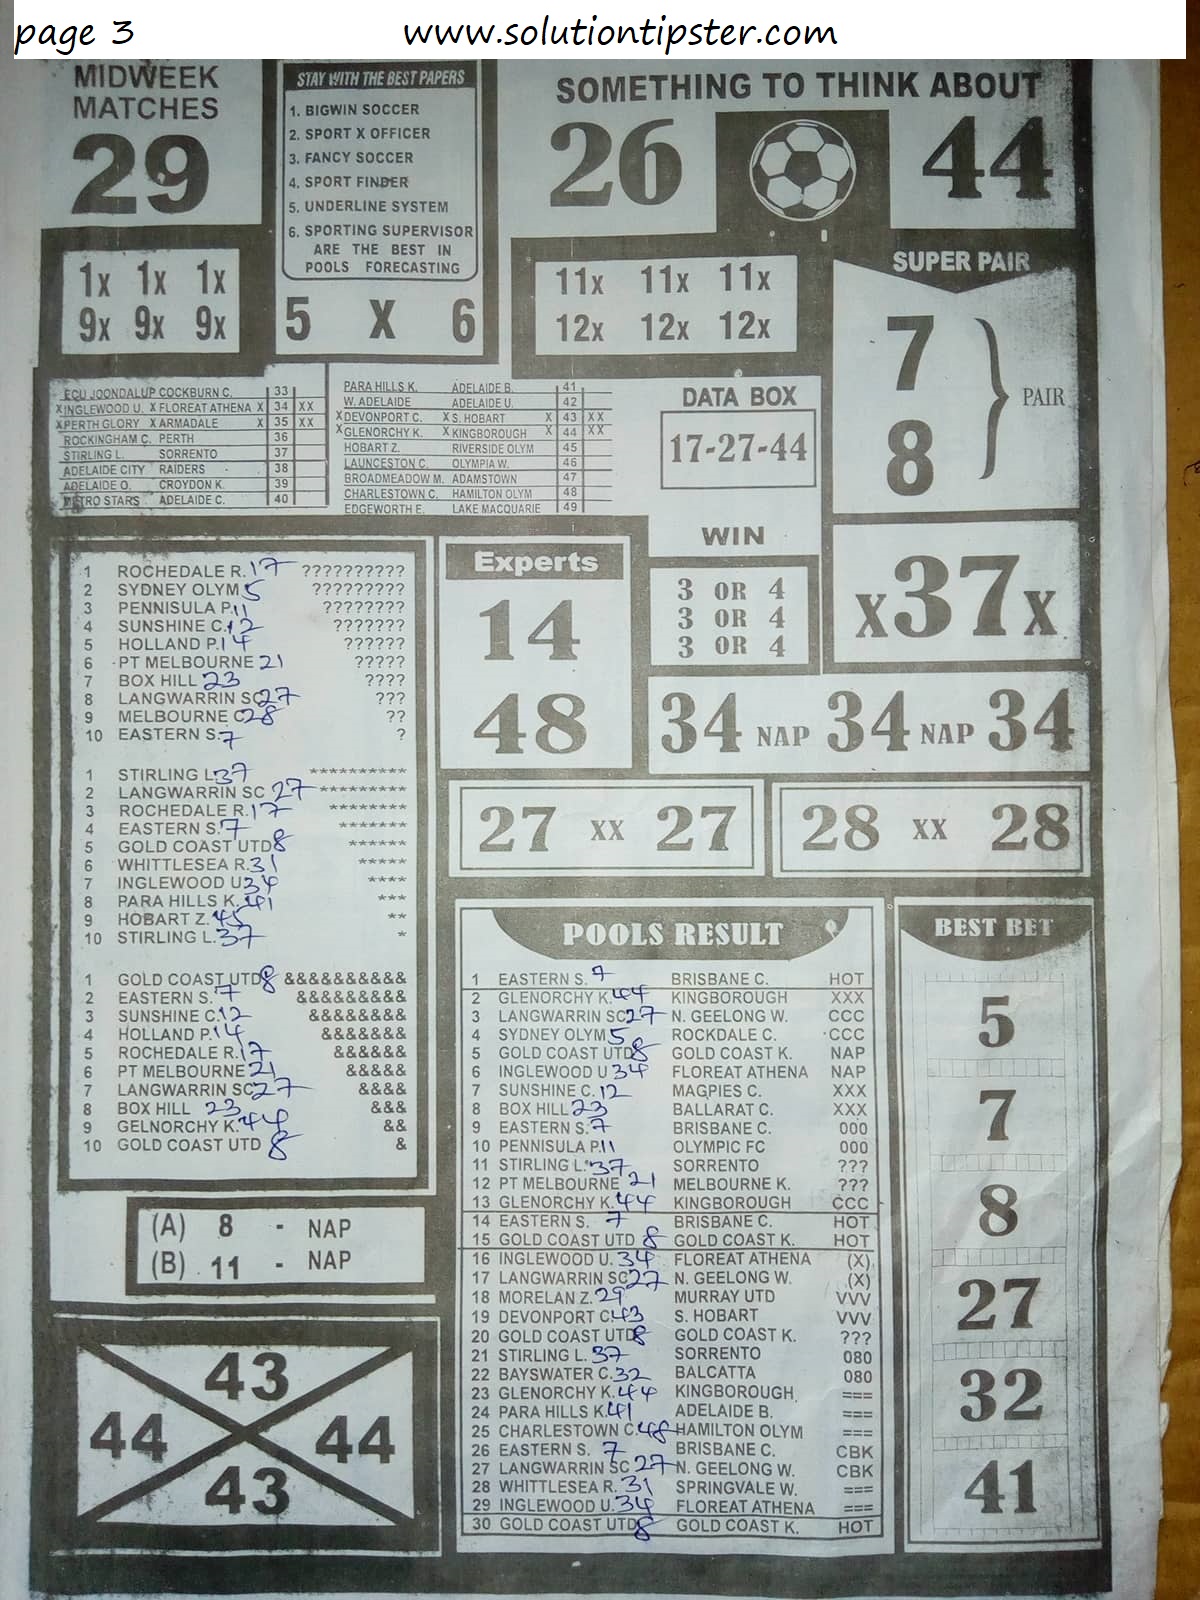 page 3 www.solutiontipster.com
MIDWEEK
MATCHES
29
STAY WITH THE BEST PAPERS
1. BIGWIN SOCCER
2. SPORT X OFFICER
3. FANCY SOCCER
4. SPORT FINDER
5. UNDERLINE SYSTEM
6. SPORTING SUPERVISOR
ARE THE BEST IN
POOLS FORECASTING
SOMETHING TO THINK ABOUT
26 44
1x 1x 1x
9x 9x 9x
5 X 6
11x 11x 11x
12x 12x 12x
SUPER PAIR
7
8
PAIR
ECU JOONDALUP COCKBURN C. 33
X INGLEWOOD U. X FLOREAT ATHENA X 34 XX
X PERTH GLORY X ARMADALE X 35 XX
ROCKINGHAM C. PERTH 36
STIRLING L. SORRENTO 37
ADELAIDE CITY RAIDERS 38
ADELAIDE O. CROYDON K. 39
METRO STARS ADELAIDE C. 40
PARA HILLS K. ADELAIDE B. 41
W. ADELAIDE ADELAIDE U. 42
X DEVONPORT C. X S. HOBART X 43 XX
X GLENORCHY K. X KINGBOROUGH X 44 XX
HOBART Z. RIVERSIDE OLYM 45
LAUNCESTON C. OLYMPIA W. 46
BROADMEADOW M. ADAMSTOWN 47
CHARLESTOWN C. HAMILTON OLYM 48
EDGEWORTH E. LAKE MACQUARIE 49
DATA BOX
17-27-44
WIN
3 OR 4
3 OR 4
3 OR 4
X 37 X
1 ROCHEDALE R. 17 ??????????
2 SYDNEY OLYM 5 ?????????
3 PENNISULA P. 11 ????????
4 SUNSHINE C. 12 ???????
5 HOLLAND P. 14 ??????
6 PT MELBOURNE 21 ?????
7 BOX HILL 23 ????
8 LANGWARRIN SC 27 ???
9 MELBOURNE C. 28 ??
10 EASTERN S. 7 ?
1 STIRLING L. 37 **********
2 LANGWARRIN SC 27 *********
3 ROCHEDALE R. 17 ********
4 EASTERN S. 7 *******
5 GOLD COAST UTD 8 ******
6 WHITTLESEA R. 31 *****
7 INGLEWOOD U. 34 ****
8 PARA HILLS K. 41 ***
9 HOBART Z. 45 **
10 STIRLING L. 37 *
1 GOLD COAST UTD 8 &&&&&&&&&&
2 EASTERN S. 7 &&&&&&&&&
3 SUNSHINE C. 12 &&&&&&&&
4 HOLLAND P. 14 &&&&&&&
5 ROCHEDALE R. 17 &&&&&&
6 PT MELBOURNE 21 &&&&&
7 LANGWARRIN SC 27 &&&&
8 BOX HILL 23 &&&
9 GELNORCHY K. 44 &&
10 GOLD COAST UTD 8 &
Experts
14
48
34 NAP 34 NAP 34
27 XX 27
28 XX 28
POOLS RESULT
1 EASTERN S. 7 BRISBANE C. HOT
2 GLENORCHY K. 44 KINGBOROUGH XXX
3 LANGWARRIN SC 27 N. GEELONG W. CCC
4 SYDNEY OLYM 5 ROCKDALE C. CCC
5 GOLD COAST UTD 8 GOLD COAST K. NAP
6 INGLEWOOD U 34 FLOREAT ATHENA NAP
7 SUNSHINE C. 12 MAGPIES C. XXX
8 BOX HILL 23 BALLARAT C. XXX
9 EASTERN S. 7 BRISBANE C. 000
10 PENNISULA P. 11 OLYMPIC FC 000
11 STIRLING L. 37 SORRENTO ???
12 PT MELBOURNE 21 MELBOURNE K. ???
13 GLENORCHY K. 44 KINGBOROUGH CCC
14 EASTERN S. 7 BRISBANE C. HOT
15 GOLD COAST UTD 8 GOLD COAST K. HOT
16 INGLEWOOD U. 34 FLOREAT ATHENA (X)
17 LANGWARRIN SC 27 N. GEELONG W. (X)
18 MORELAN Z. 29 MURRAY UTD VVV
19 DEVONPORT C. 43 S. HOBART VVV
20 GOLD COAST UTD 8 GOLD COAST K. ???
21 STIRLING L. 37 SORRENTO 080
22 BAYSWATER C. 32 BALCATTA 080
23 GLENORCHY K. 44 KINGBOROUGH ===
24 PARA HILLS K. 41 ADELAIDE B. ===
25 CHARLESTOWN C. 48 HAMILTON OLYM ===
26 EASTERN S. 7 BRISBANE C. CBK
27 LANGWARRIN SC 27 N. GEELONG W. CBK
28 WHITTLESEA R. 31 SPRINGVALE W. ===
29 INGLEWOOD U. 34 FLOREAT ATHENA ===
30 GOLD COAST UTD 8 GOLD COAST K. HOT
BEST BET
5
7
8
27
32
41
(A) 8 - NAP
(B) 11 - NAP
43
44 44
43